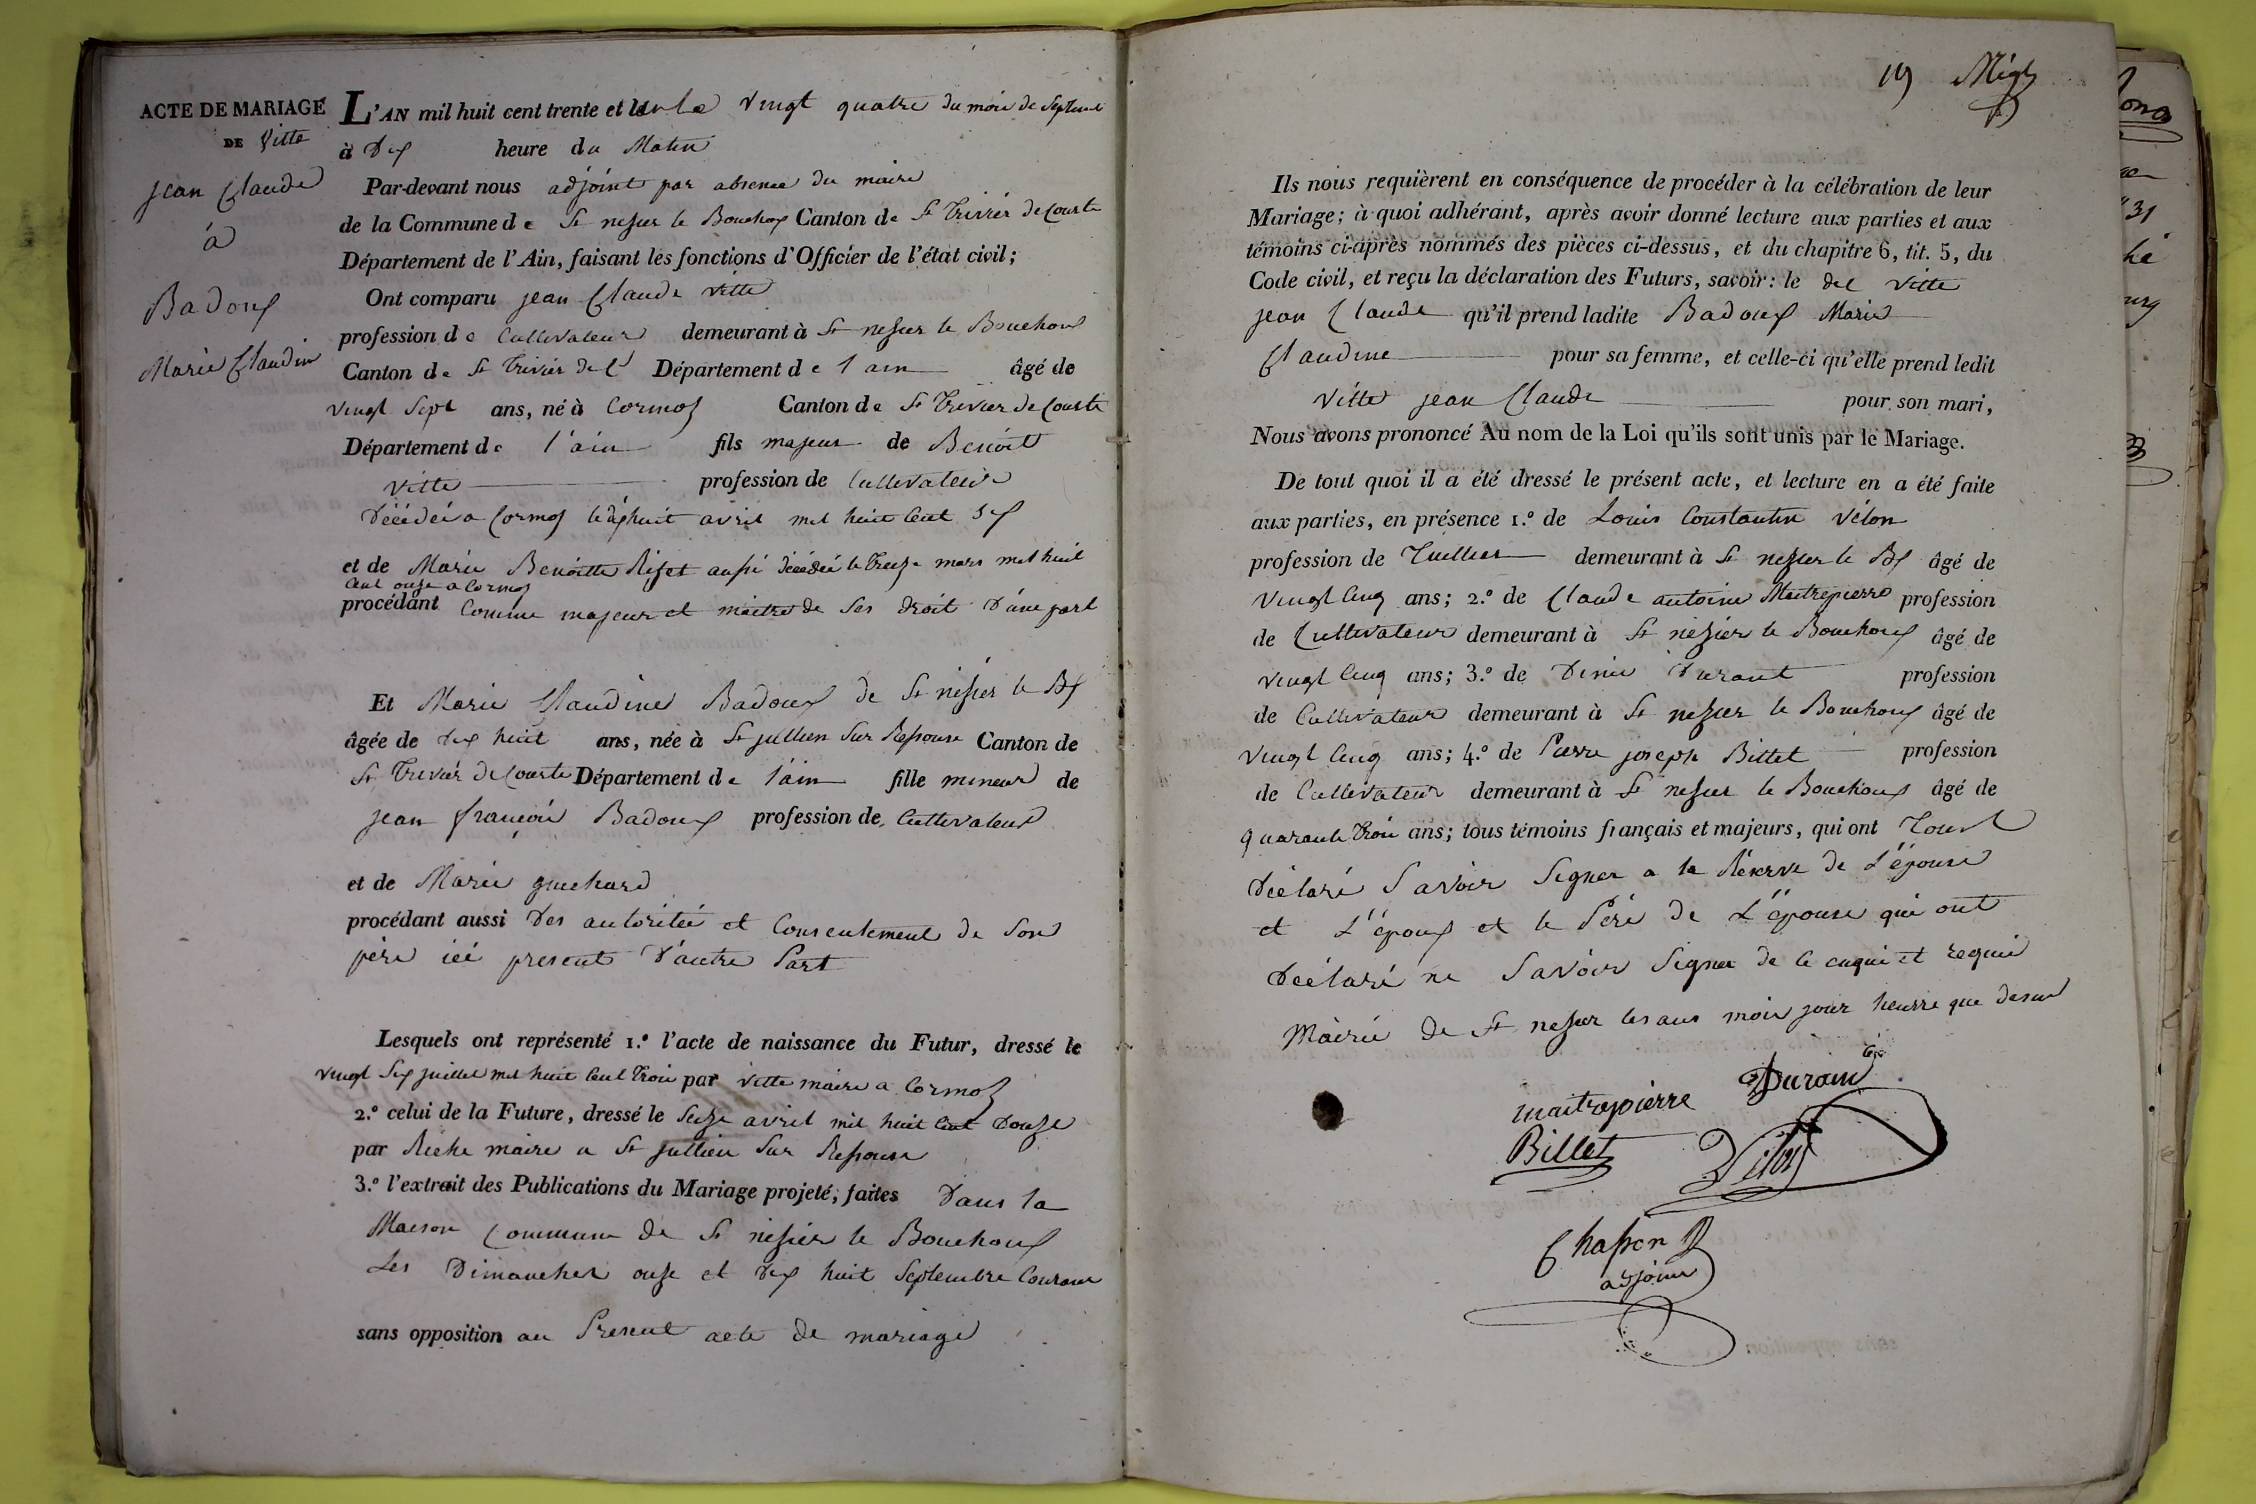 ACTE DE MARIAGE
DE Vitte
Jean Claude
à
Badoux
Marie Claudin
L'AN mil huit cent trente et un le vingt quatre du mois de Septembre
à Dix heure du Matin
Par-devant nous adjoint par absence du maire
de la Commune de St nesier le Bouchoux Canton de St Trivier de Courte
Département de l'Ain, faisant les fonctions d'Officier de l'état civil;
Ont comparu jean Claude vitte
profession de Cultivateur demeurant à St nesier le Bouchoux
Canton de St Trivier de C Département de l ain âgé de
vingt Sept ans, né à Cormoz Canton de St Trivier de Courte
Département de l'ain fils majeur de Benoit
vitte profession de Cultivateur
Décédé a Cormoz le dixhuit avril mil huit Cent Six
et de Marie Benoitte Rizet aussi décédée le treize mars mil huit
Cent onze a Cormoz
procédant Comme majeur et maitre de Ses droit D'une part
Et Marie Claudine Badoux de St nesier le Bx
âgée de dix huit ans, née à St jullien Sur Ressouse Canton de
St Trevier de Courte Département de l'ain fille mineur de
jean françois Badoux profession de Cultivateur
et de Marie guchard
procédant aussi Des autoritée et Consentement de Son
père icé present D'autre Part
Lesquels ont représenté 1.º l'acte de naissance du Futur, dressé le
vingt Six juillet mil huit Cent trois par vitte maire a Cormoz
2.º celui de la Future, dressé le Seize avril mil huit Cent Douze
par Riche maire a St jullien Sur Ressouse
3.º l'extrait des Publications du Mariage projeté, faites Dans la
Maison Commune de St nesier le Bouchoux
Les Dimanches onze et Dix huit Septembre Courant
sans opposition au Present acte de mariage
19
Ils nous requièrent en conséquence de procéder à la célébration de leur
Mariage; à quoi adhérant, après avoir donné lecture aux parties et aux
témoins ci-après nommés des pièces ci-dessus, et du chapitre 6, tit. 5, du
Code civil, et reçu la déclaration des Futurs, savoir: le dit Vitte
jean Claude qu'il prend ladite Badoux Marie
Claudine pour sa femme, et celle-ci qu'elle prend ledit
Vitte jean Claude pour son mari,
Nous avons prononcé Au nom de la Loi qu'ils sont unis par le Mariage.
De tout quoi il a été dressé le présent acte, et lecture en a été faite
aux parties, en présence 1.º de Louis Constantin Vélon
profession de Tuillier demeurant à St nesier le Bx âgé de
Vingt Cinq ans; 2.º de Claude antoine Maitrepierre profession
de Cultivateur demeurant à St nesier le Bouchoux âgé de
vingt Cinq ans; 3.º de Denis Durant profession
de Cultivateur demeurant à St nesier le Bouchoux âgé de
vingt Cinq ans; 4.º de Pierre joseph Billet profession
de Cultivateur demeurant à St nesier le Bouchoux âgé de
quarante trois ans; tous témoins français et majeurs, qui ont Tout
Déclaré Savoir Signer a la Réserve de L'épouse
et L'époux et le Père de L'épouse qui ont
Déclaré ne Savoir Signer de ce enqui et requis
Mairie de St nesier les ans mois jour heurre que desus
maitrepierre Durand
Billet Vélon
Chassen
adjoint